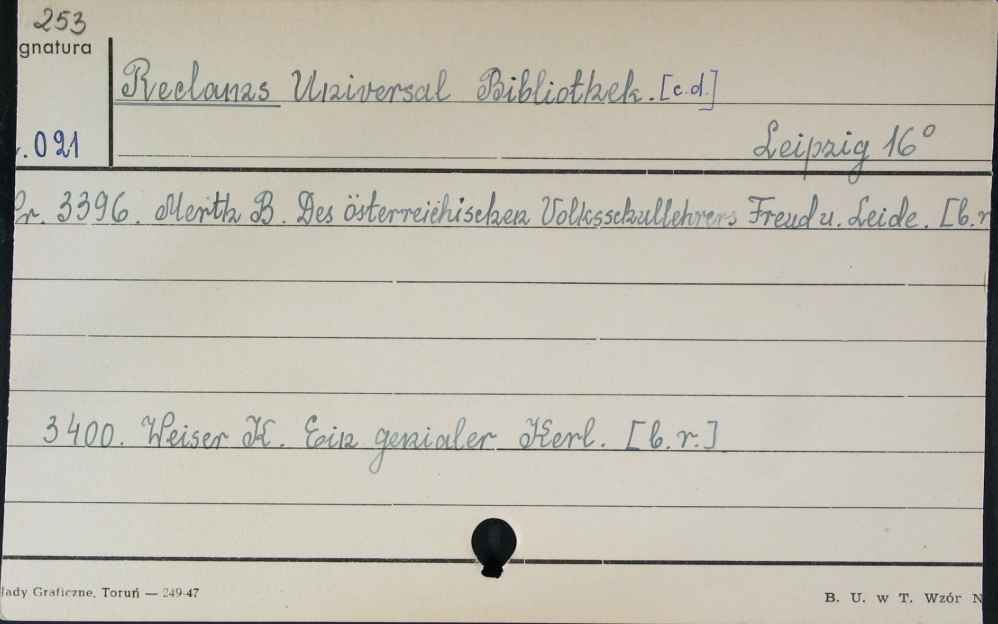 253
gnatura
Reclams Universal Bibliothek. [c.d.]
.021
Leipzig 16°
Nr. 3396. Merth B. Des österreichischen Volksschullehrers Freud u. Leide. [b.r
3400. Weiser K. Ein genialer Kerl. [b.r.]
łady Graficzne, Toruń — 249-47
B. U. w T. Wzór N